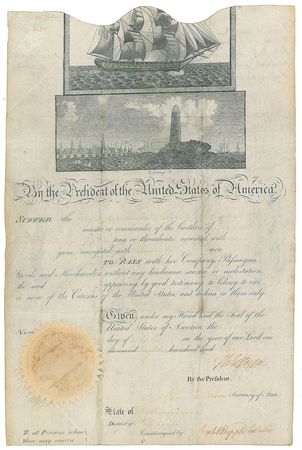 By the President of the United States of America
SUFFER the
master or commander of the burthen of
tons or thereabouts mounted with
guns navigated with men
TO PASS with her Company, Passengers
Goods and Merchandize without any hinderance seizure or molestation
the said appearing by good testimony to belong to one
or more of the Citizens of the United States, and to him or them only
Given under my Hand and the Seal of the
United States of America the
day of in the year of our Lord one
thousand hundred and
By the President
Secretary of State
State of
District of
Countersigned by
To all Persons whom
these may concern